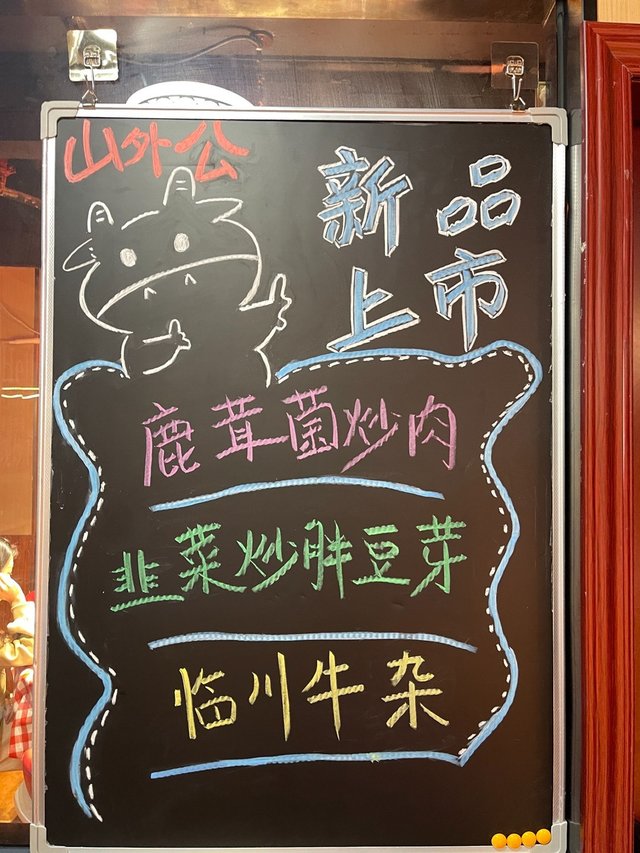 山外公
新品
上市
鹿茸菌炒肉
韭菜炒胖豆芽
临川牛杂